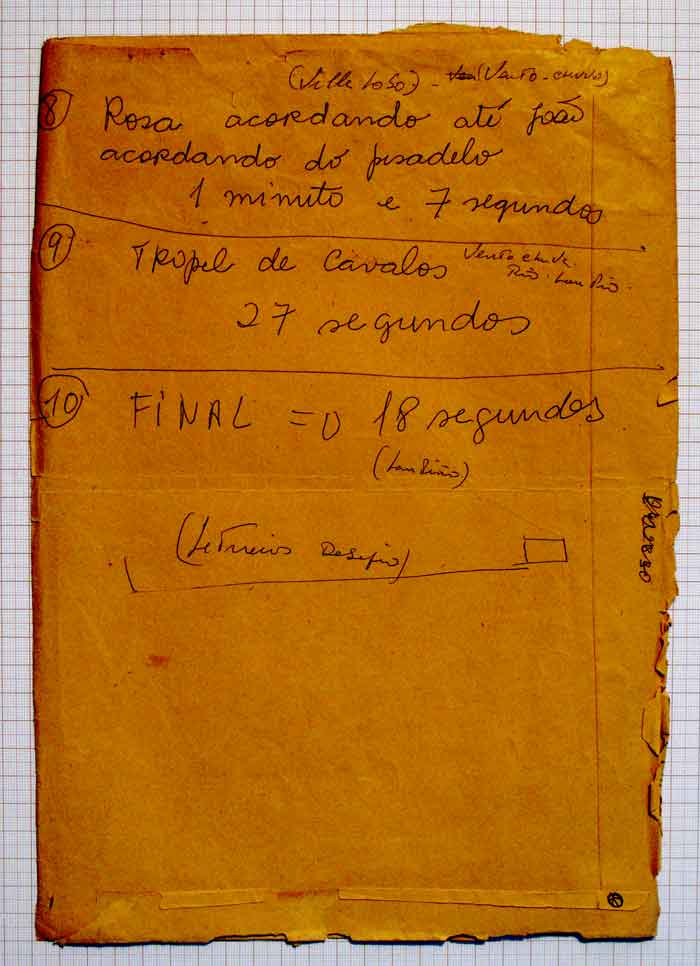 (Ville Lobo) - (Vento - chuva)
8 Rosa acordando até João
acordando do pesadelo
1 minuto e 7 segundos
9 TROPEL de cavalos Vento chuva.
27 segundos
10 FINAL => 18 segundos
(Lampião)
(Letreiros Desafio)